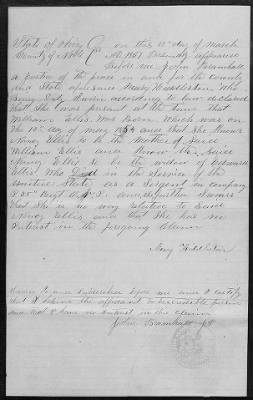 State of Ohio
County of Noble SS on this 12th day of March
AD 1867 Personally appeared
before me John Bramhall
a justice of the peace in and for the county
and State aforesaid Mary Huddleston Who
being Duly Sworn according to law declared
that She was present at the time that
William Ellis Was Born Which was on
the 10th day of may 1864 and that She knows
Nancy Ellis to be the Mother of Said
William Ellis and knows the Said
Nancy Ellis to be the widow of
Ellis Who Died in the Service of the
United States as a Sergent in company
Regt O. V. I. and
that She is no way relative to Said
Nancy Ellis and that She has no
interest in the foregoing claim
Mary Huddleston
Sworn to and Subscribed before me and I certify
that I believe the affiant to be credible person
and that I have no interest in the claim
John Bramhall J P